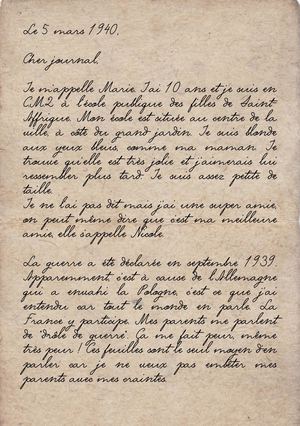 Le 5 mars 1940,
Cher journal,
Je m'appelle Marie. J'ai 10 ans et je suis en
CM2 à l'école publique des filles de Saint
Affrique. Mon école est située au centre de la
ville, à côté du grand jardin. Je suis blonde
aux yeux bleus, comme ma maman. Je
trouve qu'elle est très jolie et j'aimerais lui
ressembler plus tard. Je suis assez petite de
taille.
Je ne l'ai pas dit mais j'ai une super amie,
on peut même dire que c'est ma meilleure
amie, elle s'appelle Nicole.
La guerre a été déclarée en septembre 1939.
Apparemment, c'est à cause de l'Allemagne
qui a envahi la Pologne, c'est ce que j'ai
entendu car tout le monde en parle. La
France y participe. Mes parents me parlent
de "drôle de guerre". Ca me fait peur, même
très peur ! Ces feuilles sont le seul moyen d'en
parler car je ne veux pas embêter mes
parents avec mes craintes.